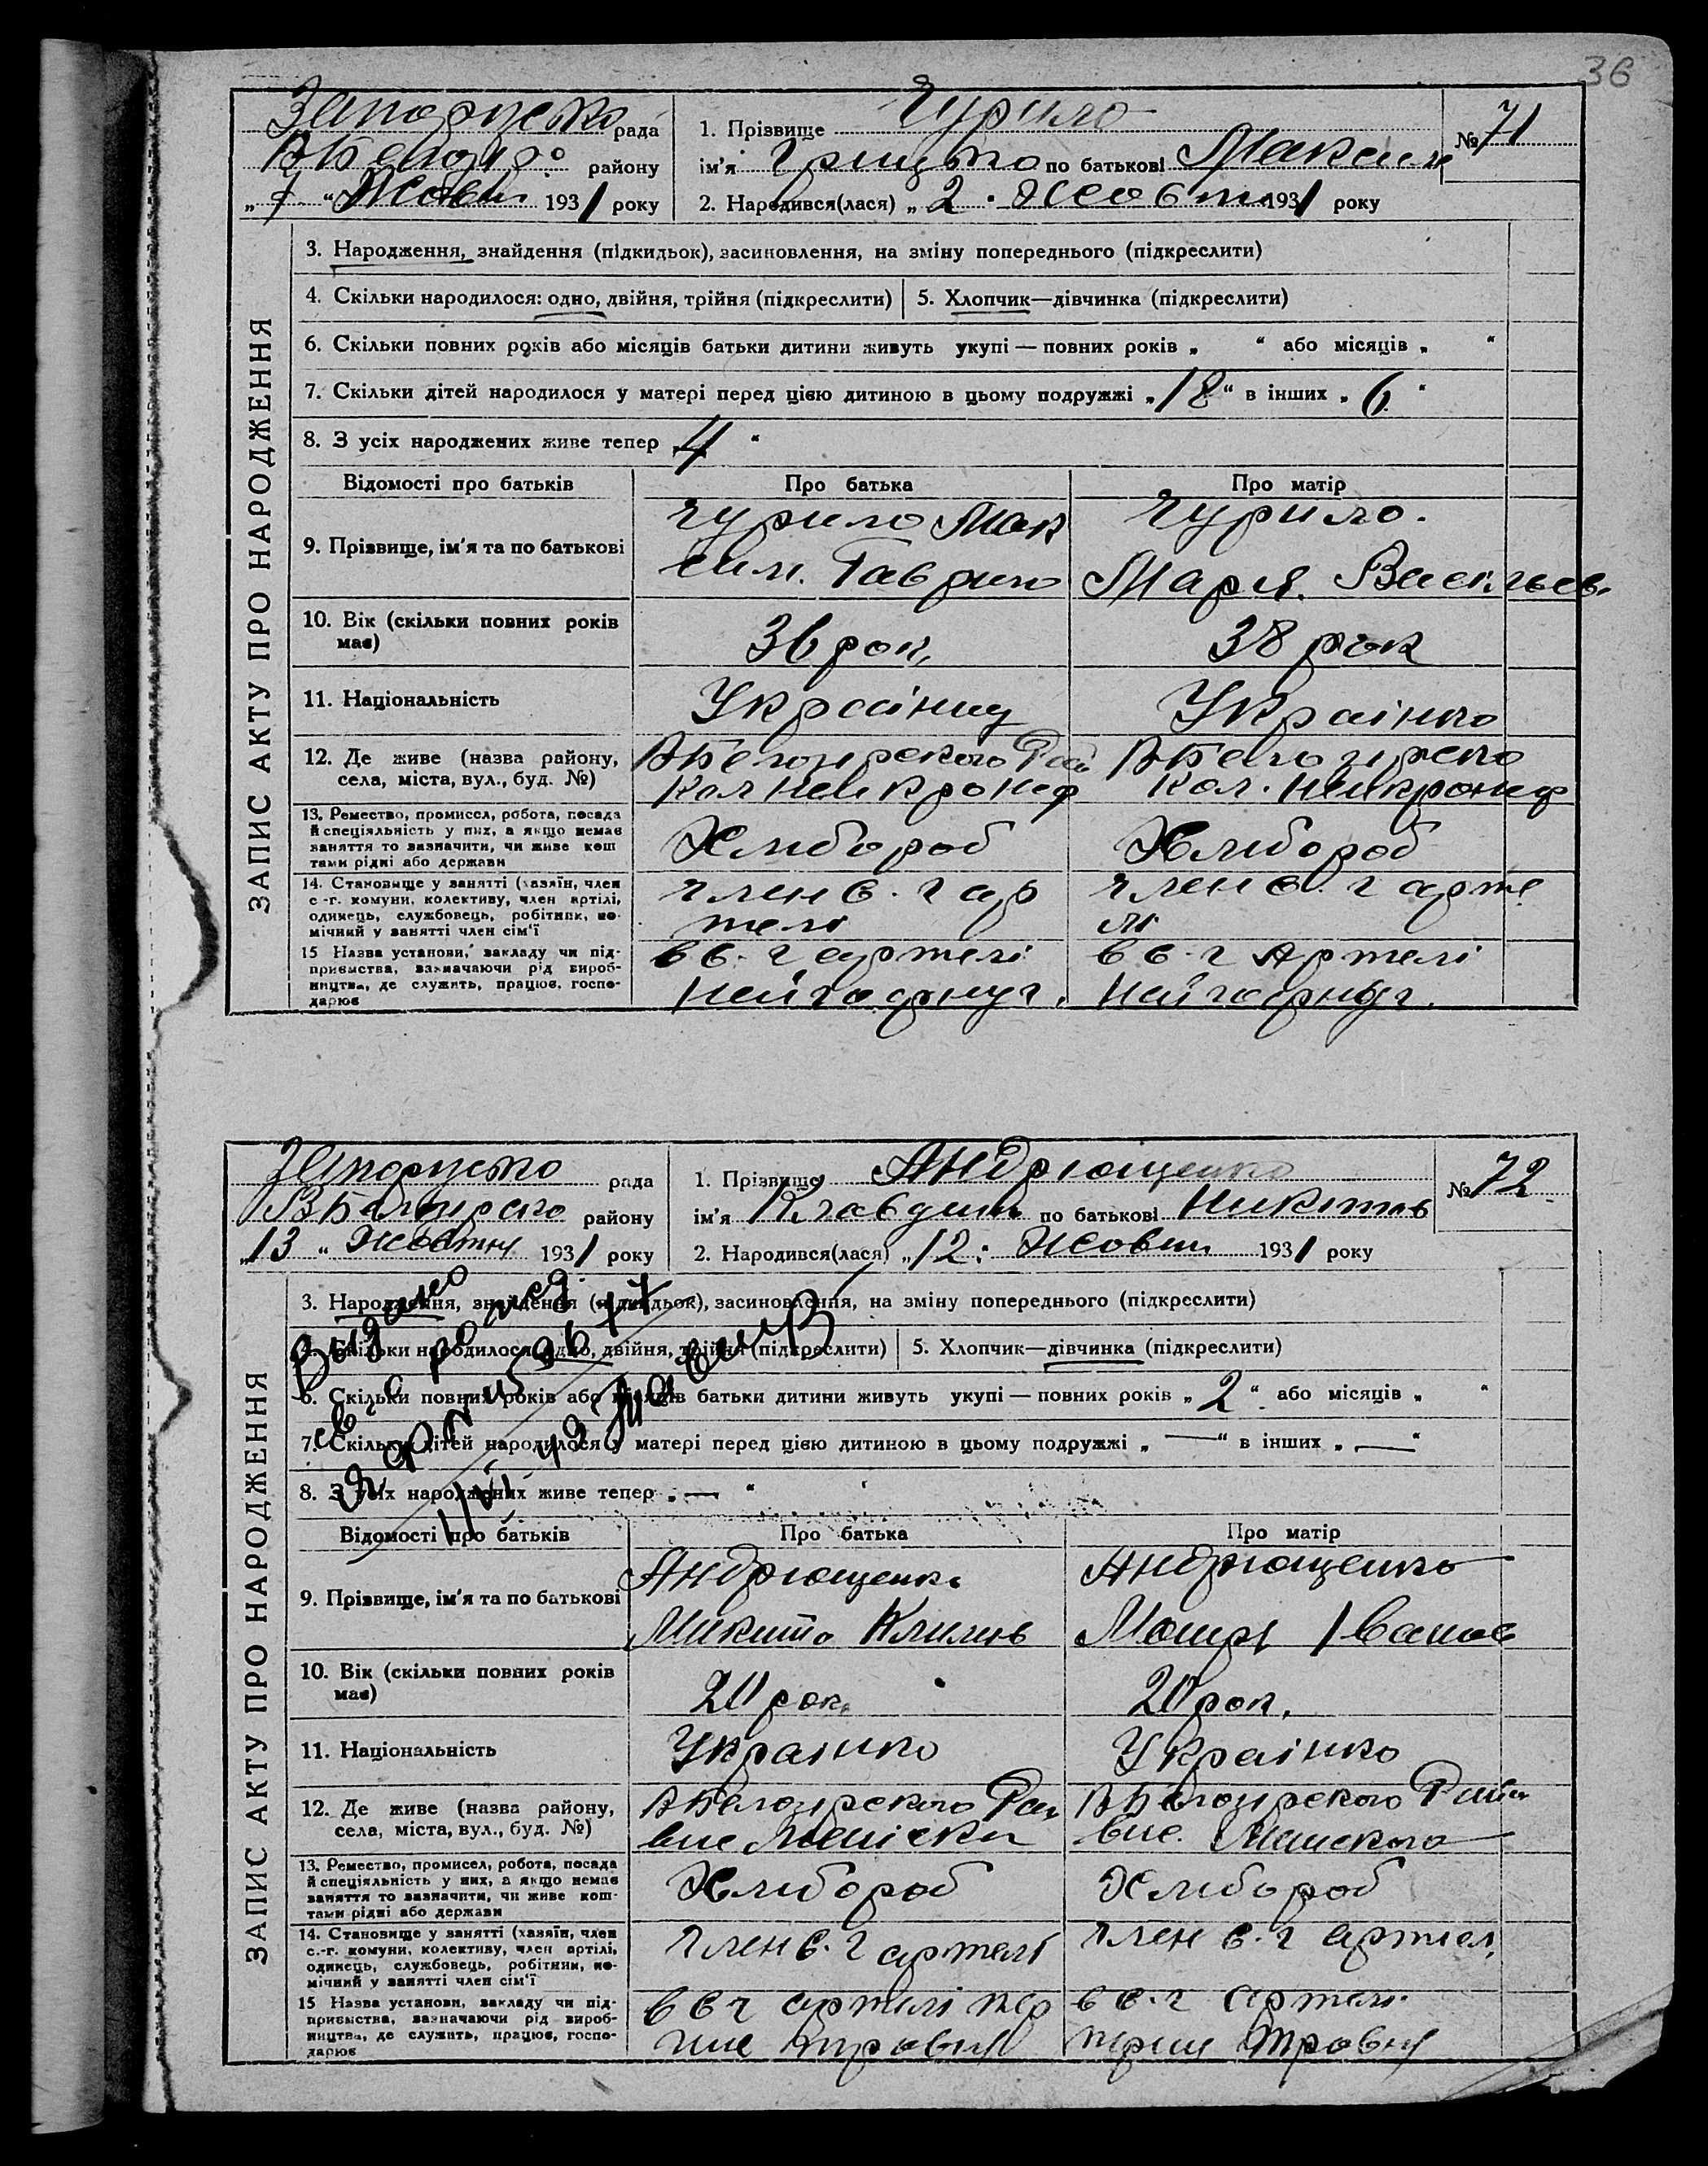 36
Запоріжко рада
ВБелозір. району
„ 7 “ Жовт. 1931 року
1. Прізвище Чурило
ім'я Грицько по батькові Максим
2. Народився(лася) „ 2 . Жовтн. 1931 року
№ 71
ЗАПИС АКТУ ПРО НАРОДЖЕННЯ
3. Народження, знайдення (підкидьок), засиновлення, на зміну попереднього (підкреслити)
4. Скільки народилося: одно, двійня, трійня (підкреслити)
5. Хлопчик—дівчинка (підкреслити)
6. Скільки повних років або місяців батьки дитини живуть укупі — повних років „ “ або місяців „ “
7. Скільки дітей народилося у матері перед цією дитиною в цьому подружжі „ 12 “ в інших „ 6 “
8. З усіх народжених живе тепер 4 “
Відомості про батьків
Про батька
Про матір
9. Прізвище, ім'я та по батькові
Чурило Мак
сим. Гаврило
Чурило.
Мария. Васильев.
10. Вік (скільки повних років
має)
36 рок,
38 рок
11. Національність
Украінец
Украінко
12. Де живе (назва району,
села, міста, вул., буд. №)
ВБелозирского Рай
Кол Нейкронсф
ВБелозирско
Кол. Нейкронсф
13. Ремество, промисел, робота, посада
й спеціяльність у них, а якщо немає
заняття то зазначити, чи живе кош
тами рідні або держави
Хлибороб
Хлибороб
14. Становище у занятті (хазяїн, член
с -г. комуни, колективу, член артілі,
одинець, службовець, робітник, по-
мічний у занятті член сім'ї
член с. г ар
телі
член с. г арте
лі
15 Назва установи, закладу чи під-
приємства, зазначаючи рід вироб-
ництва, де служить, працює, госпо-
дарює
в с. г артелі
в с. г Артелі
Запоріжко рада
ВБелозирско району
„ 13 „ Жовтня 1931 року
1. Прізвище Андрющенко
ім'я Клавдия по батькові Никитов
2. Народився(лася) „ 12 . Жовтн 1931 року
№ 72
ЗАПИС АКТУ ПРО НАРОДЖЕННЯ
3. Народження, знайдення (підкидьок), засиновлення, на зміну попереднього (підкреслити)
4. Скільки народилося: одно, двійня, трійня (підкреслити)
5. Хлопчик—дівчинка (підкреслити)
6. Скільки повних років або місяців батьки дитини живуть укупі — повних років „ 2 “ або місяців „ “
7. Скільки дітей народилося у матері перед цією дитиною в цьому подружжі „ — “ в інших „ — “
8. З усіх народжених живе тепер „ — “
Выдано
св. о рожд.
Відомості про батьків
Про батька
Про матір
9. Прізвище, ім'я та по батькові
Андрющенко
Микита Климов
Андрющенко
Мотря Іванов
10. Вік (скільки повних років
має)
20 рок.
20 рок.
11. Національність
Украінко
Украінко
12. Де живе (назва району,
села, міста, вул., буд. №)
ВБелозирского Рай
ВБелозирского Район
13. Ремество, промисел, робота, посада
й спеціяльність у них, а якщо немає
заняття то зазначити, чи живе кош-
тами рідні або держави
Хлибороб
Хлибороб
14. Становище у занятті (хазяїн, член
с.-г. комуни, колективу, член артілі,
одинець, службовець, робітник, по-
мічний у занятті член сім'ї
член с. г артелі
член с. г артел.
15 Назва установи, закладу чи під-
приємства, зазначаючи рід вироб-
ництва, де служить, працює, госпо-
дарює
в с г артелі пер
ше травня
в с. г артелі.
перш травня